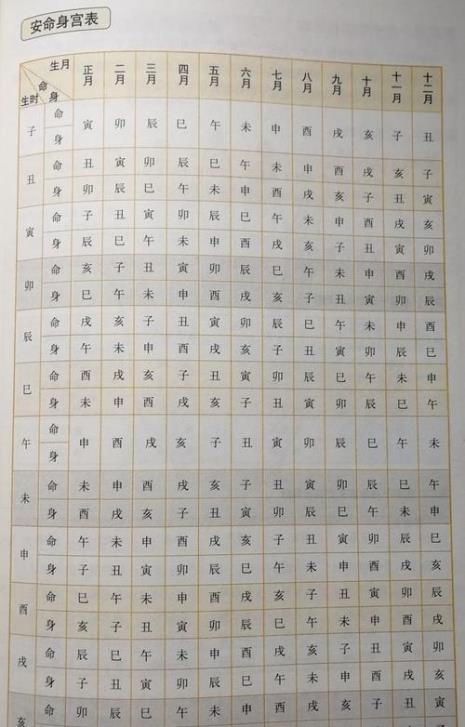 安命身宫表
生月
命
身
生时
正月 二月 三月 四月 五月 六月 七月 八月 九月 十月 十一月 十二月
子 命 身 寅 卯 辰 巳 午 未 申 酉 戌 亥 子 丑
丑 命 丑 寅 卯 辰 巳 午 未 申 酉 戌 亥 子
身 卯 辰 巳 午 未 申 酉 戌 亥 子 丑 寅
寅 命 子 丑 寅 卯 辰 巳 午 未 申 酉 戌 亥
身 辰 巳 午 未 申 酉 戌 亥 子 丑 寅 卯
卯 命 亥 子 丑 寅 卯 辰 巳 午 未 申 酉 戌
身 巳 午 未 申 酉 戌 亥 子 丑 寅 卯 辰
辰 命 戌 亥 子 丑 寅 卯 辰 巳 午 未 申 酉
身 午 未 申 酉 戌 亥 子 丑 寅 卯 辰 巳
巳 命 酉 戌 亥 子 丑 寅 卯 辰 巳 午 未 申
身 未 申 酉 戌 亥 子 丑 寅 卯 辰 巳 午
午 命 身 申 酉 戌 亥 子 丑 寅 卯 辰 巳 午 未
未 命 未 申 酉 戌 亥 子 丑 寅 卯 辰 巳 午
身 酉 戌 亥 子 丑 寅 卯 辰 巳 午 未 申
申 命 午 未 申 酉 戌 亥 子 丑 寅 卯 辰 巳
身 子 丑 寅 卯 辰 巳 午 未 申 酉 戌 亥
酉 命 巳 午 未 申 酉 戌 亥 子 丑 寅 卯 辰
身 亥 子 丑 寅 卯 辰 巳 午 未 申 酉 戌
戌 命 辰 巳 午 未 申 酉 戌 亥 子 丑 寅 卯
身 子 丑 寅 卯 辰 巳 午 未 申 酉 戌 亥
亥 命 卯 辰 巳 午 未 申 酉 戌 亥 子 丑 寅